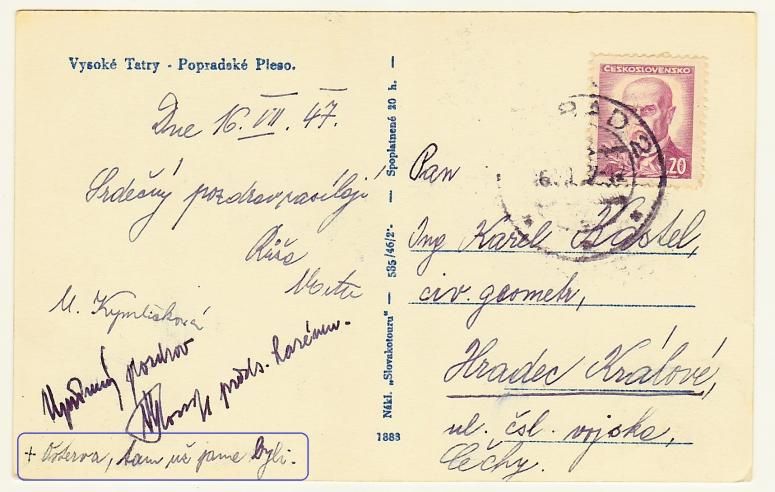 Vysoké Tatry - Popradské Pleso.
Dne 16. VII. 47.
Srdečný pozdrav zasílají
Růša
M. Kymličková
Upřímný pozdrov
předs. harému.
+ Osterva, tam už jsme byli.
Nákl. „Slovakotouru“ — 585/46/2 — Spoplatnené 20 h. —
1883
ČESKOSLOVENSKO
20
RAD 2
Pan
Ing Karel Kastel,
civ. geometr,
Hradec Králové,
ul. čsl. vojska,
Čechy.